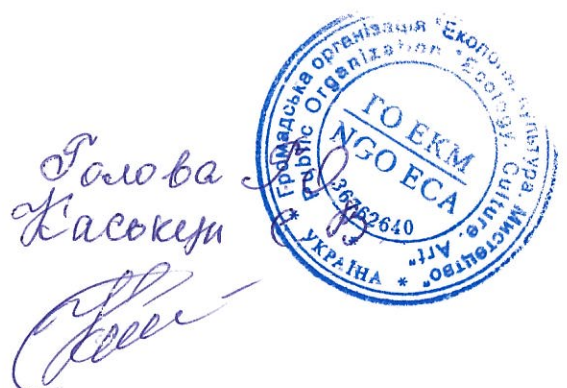 Громадська організація "Екологія. Культура. Мистецтво"
Public Organization "Ecology, Culture, Art"
ГО ЕКМ
NGO ECA
36762640
* УКРАЇНА *
Голова